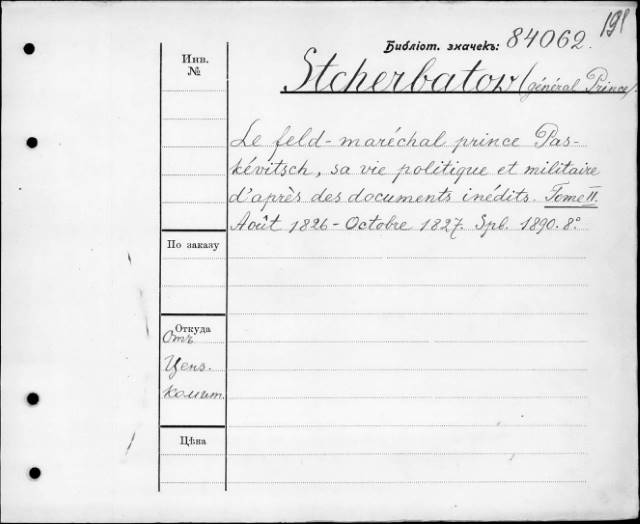 191
Библіот. значекъ: 84062.
Инв. №
Stcherbatow (général Prince).
Le feld-maréchal prince Pas-
kévitsch, sa vie politique et militaire
d'après des documents inédits. Tome II.
Août 1826 - Octobre 1827. Spb. 1890. 8°
По заказу
Откуда
Отъ
Ценз.
комит.
Цѣна